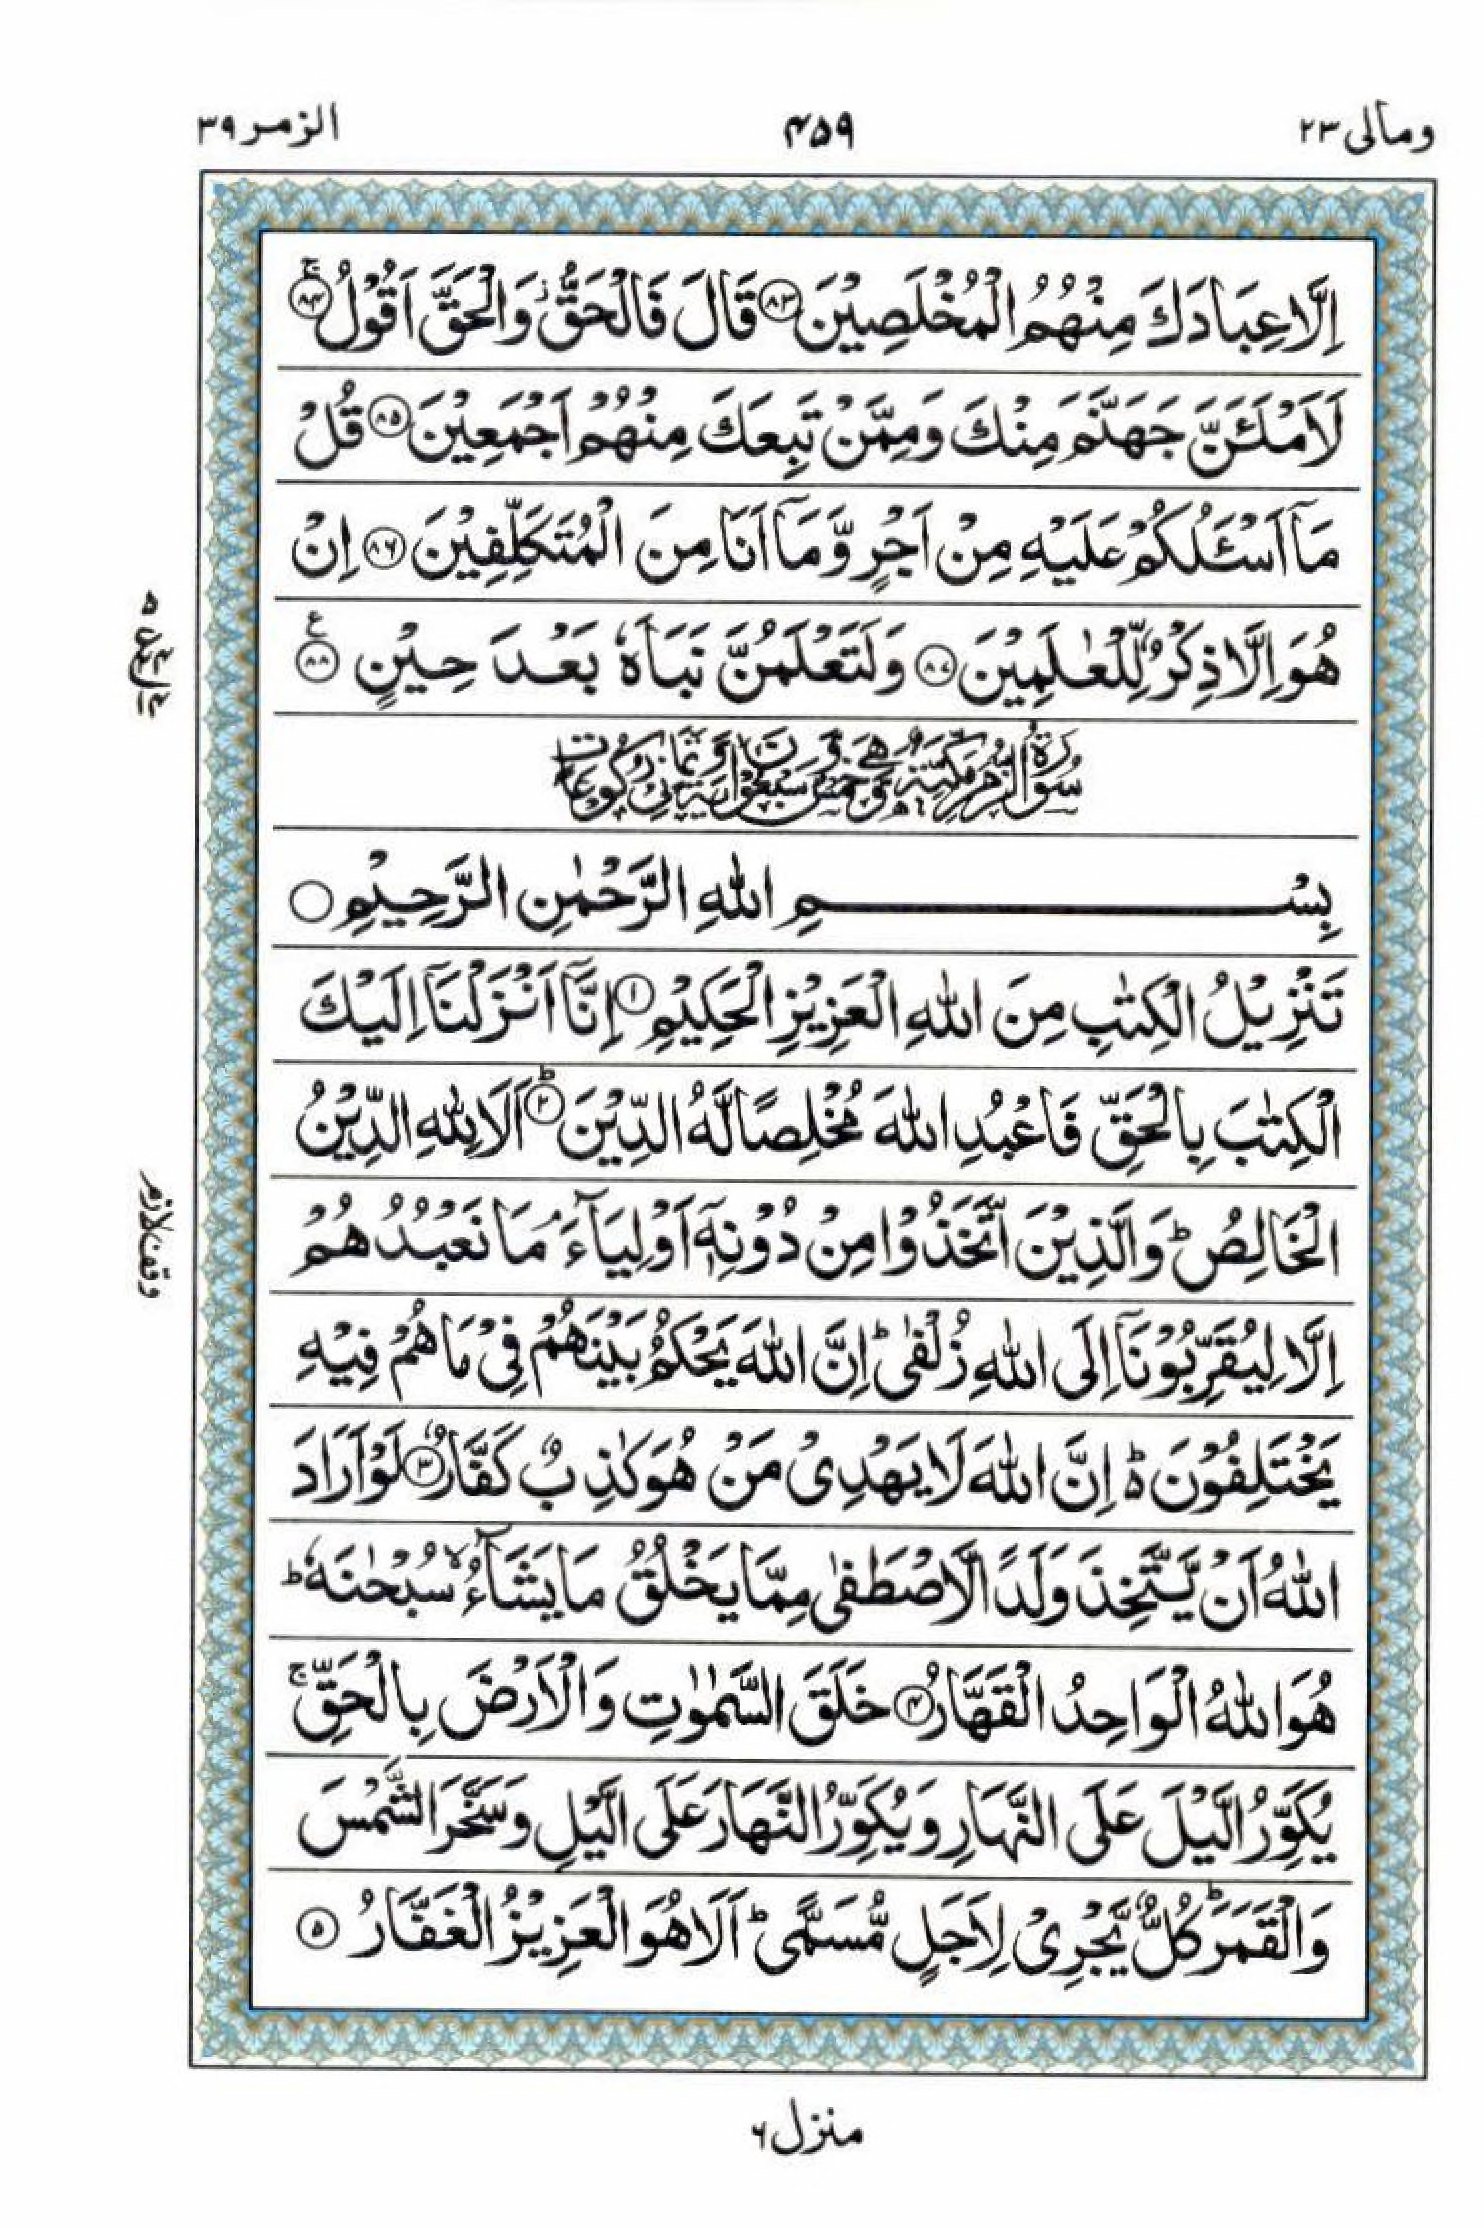 ومالی ٢٣
٤٥٩
الزمر ٣٩
اِلَّا عِبَادَكَ مِنْهُمُ الْمُخْلَصِيْنَ ﴿٨٣﴾ قَالَ فَالْحَقُّ ز وَالْحَقَّ اَقُوْلُ ﴿٨٤﴾ ج
لَاَمْلَـَٔنَّ جَهَنَّمَ مِنْكَ وَمِمَّنْ تَبِعَكَ مِنْهُمْ اَجْمَعِيْنَ ﴿٨٥﴾ قُلْ
مَاۤ اَسْـَٔلُكُمْ عَلَيْهِ مِنْ اَجْرٍ وَّمَاۤ اَنَا مِنَ الْمُتَكَلِّفِيْنَ ﴿٨٦﴾ اِنْ
هُوَ اِلَّا ذِكْرٌ لِّلْعٰلَمِيْنَ ﴿٨٧﴾ وَلَتَعْلَمُنَّ نَبَاَهٗ بَعْدَ حِيْنٍ ﴿٨٨﴾ ع
سُوْرَةُ الزُّمَرِ مَكِّيَّةٌ وَّهِيَ خَمْسٌ وَّسَبْعُوْنَ اٰيَةً وَّثَمَانِيْ رُكُوْعَاتٍ
بِسْمِ اللّٰهِ الرَّحْمٰنِ الرَّحِيْمِ
تَنْزِيْلُ الْكِتٰبِ مِنَ اللّٰهِ الْعَزِيْزِ الْحَكِيْمِ ﴿١﴾ اِنَّاۤ اَنْزَلْنَاۤ اِلَيْكَ
الْكِتٰبَ بِالْحَقِّ فَاعْبُدِ اللّٰهَ مُخْلِصًا لَّهُ الدِّيْنَ ﴿٢﴾ ط اَلَا لِلّٰهِ الدِّيْنُ
الْخَالِصُ ط وَالَّذِيْنَ اتَّخَذُوْا مِنْ دُوْنِهٖۤ اَوْلِيَآءَ م مَا نَعْبُدُهُمْ
اِلَّا لِيُقَرِّبُوْنَاۤ اِلَى اللّٰهِ زُلْفٰى ط اِنَّ اللّٰهَ يَحْكُمُ بَيْنَهُمْ فِيْ مَا هُمْ فِيْهِ
يَخْتَلِفُوْنَ ط۬ اِنَّ اللّٰهَ لَا يَهْدِيْ مَنْ هُوَ كٰذِبٌ كَفَّارٌ ﴿٣﴾ لَوْ اَرَادَ
اللّٰهُ اَنْ يَّتَّخِذَ وَلَدًا لَّاصْطَفٰى مِمَّا يَخْلُقُ مَا يَشَآءُ لا سُبْحٰنَهٗ ط
هُوَ اللّٰهُ الْوَاحِدُ الْقَهَّارُ ﴿٤﴾ خَلَقَ السَّمٰوٰتِ وَالْاَرْضَ بِالْحَقِّ ج
يُكَوِّرُ الَّيْلَ عَلَى النَّهَارِ وَيُكَوِّرُ النَّهَارَ عَلَى الَّيْلِ وَسَخَّرَ الشَّمْسَ
وَالْقَمَرَ ط كُلٌّ يَّجْرِيْ لِاَجَلٍ مُّسَمًّى ط اَلَا هُوَ الْعَزِيْزُ الْغَفَّارُ ﴿٥﴾
وقف لازم
منزل ٦